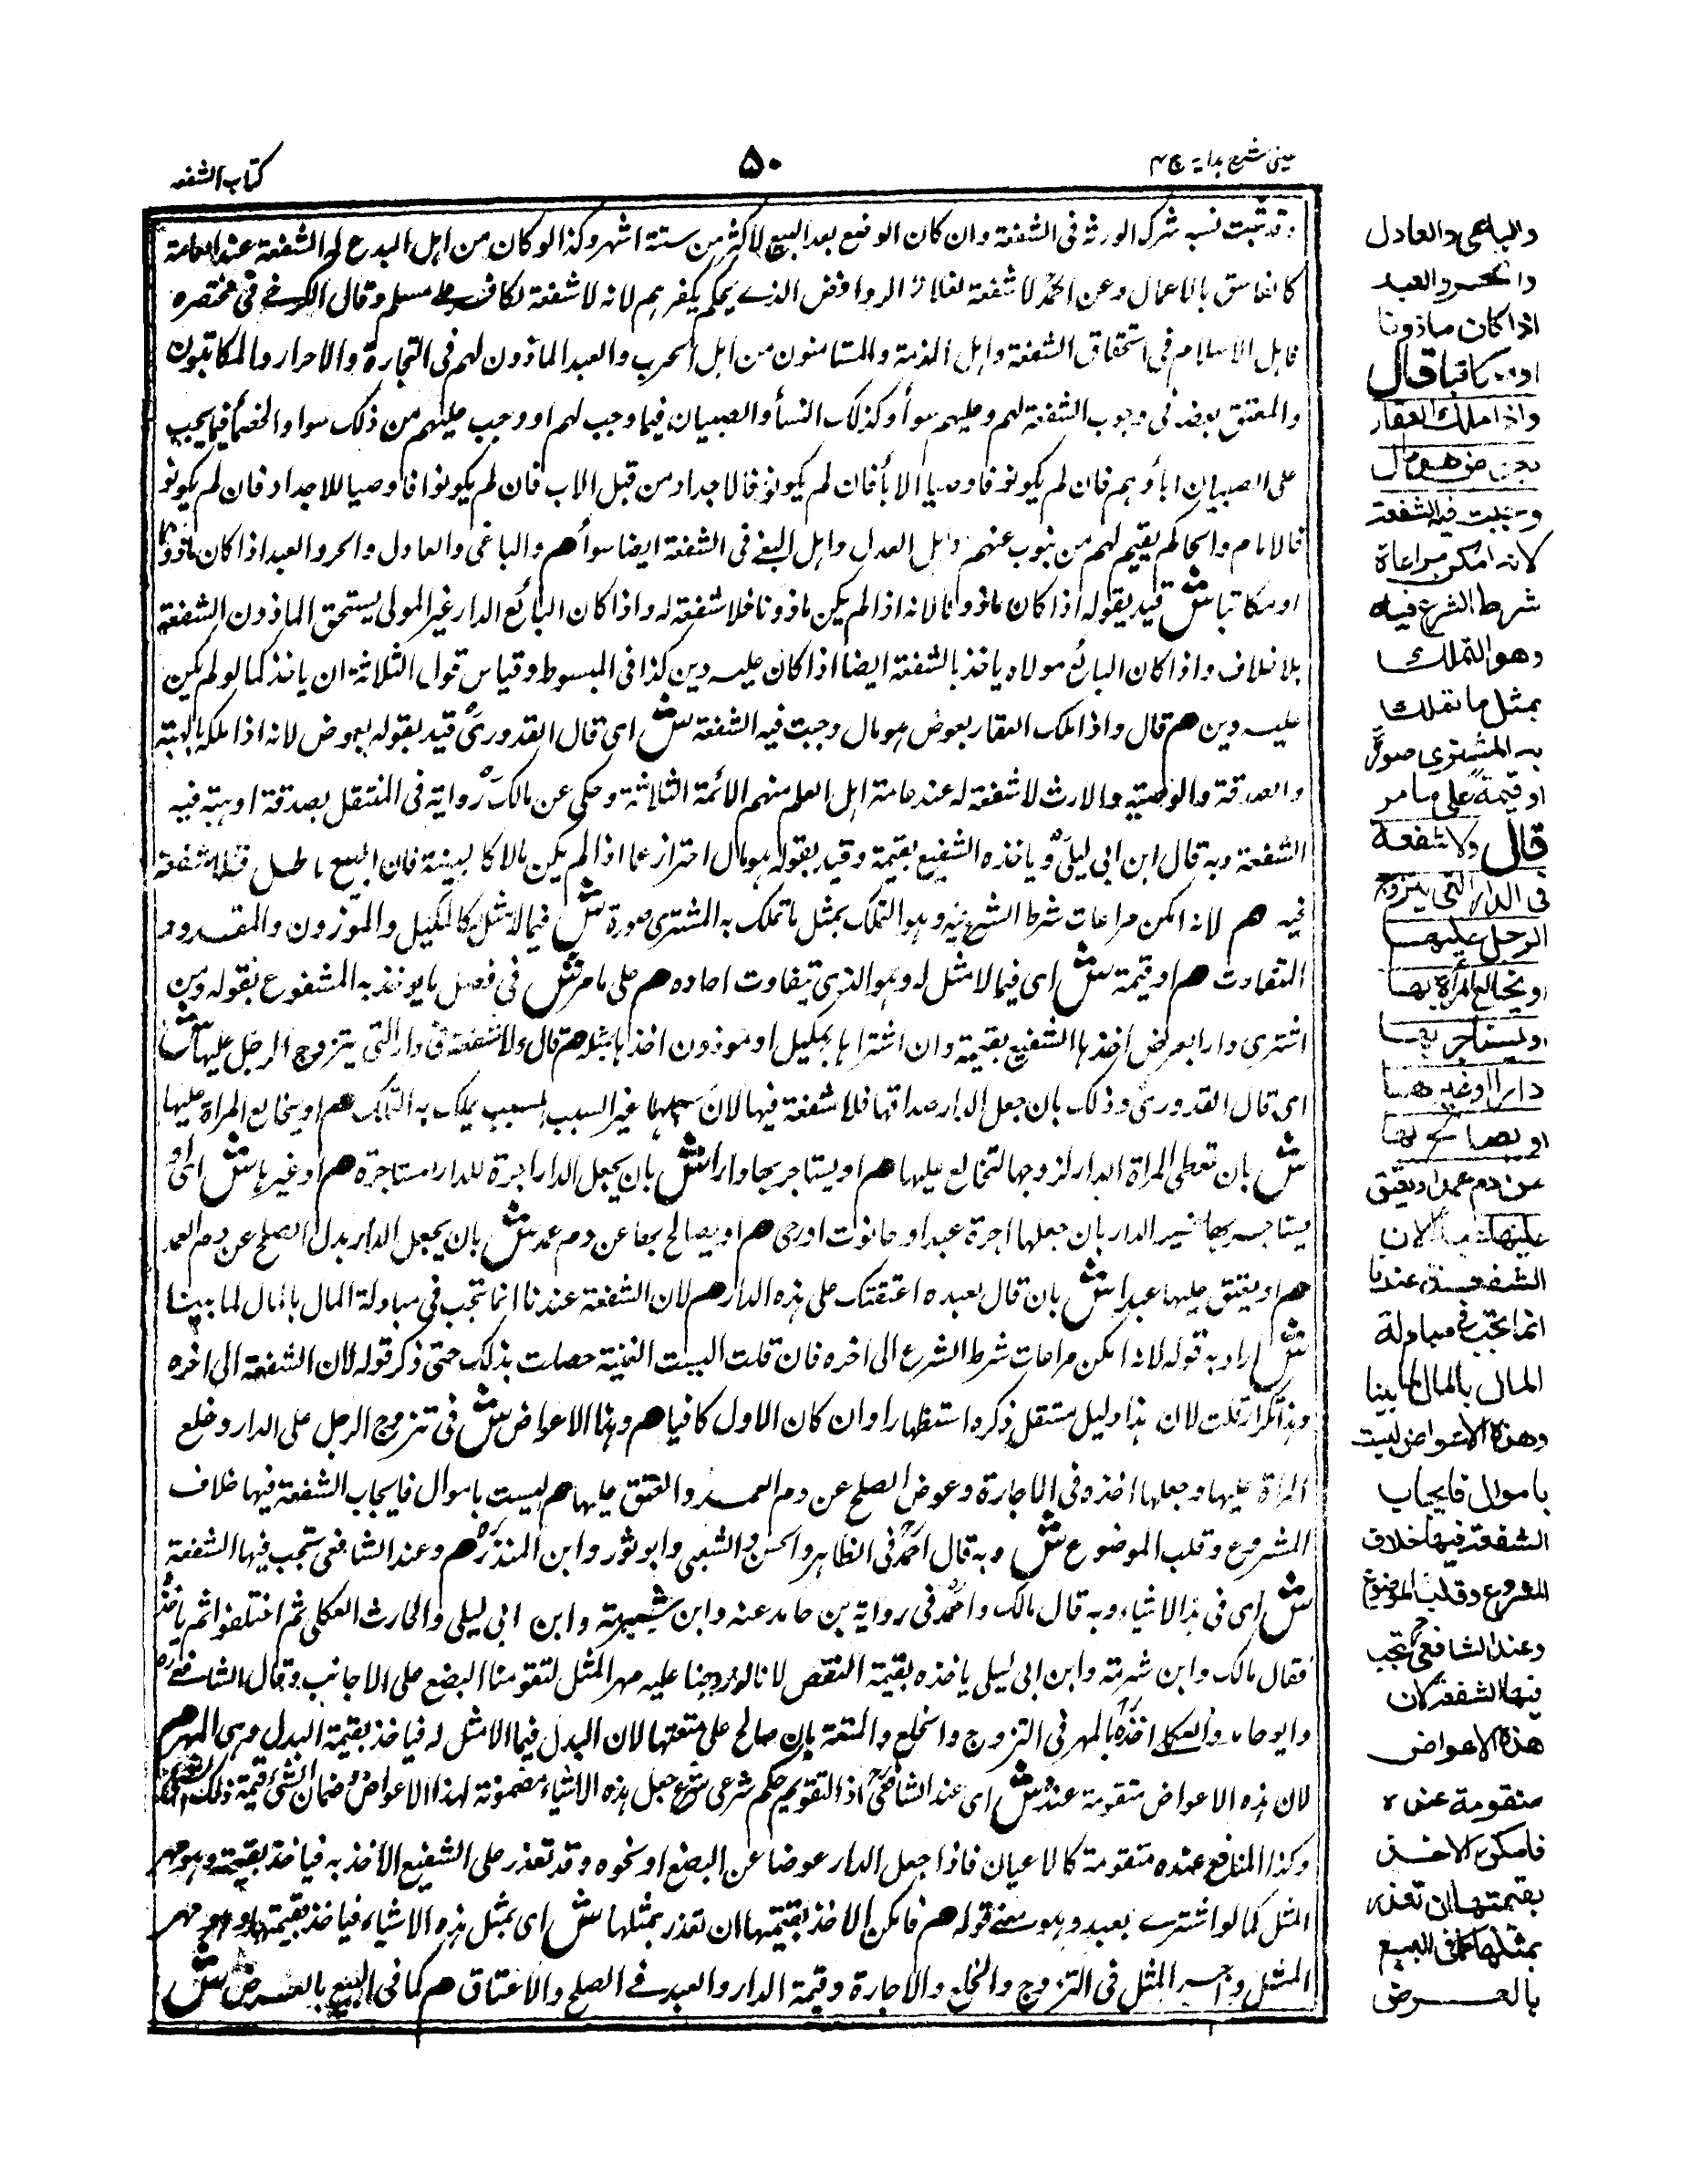 عینی شرح ہدایہ ج ۴
۵۰
کتاب الشفعہ
وقد ثبت نسبه شرك الورثة فى الشفعة وان كان الوضع بعد البيع لاكثر من ستة اشهر وكذا لو كان من اهل البدع له الشفعة عند العامة
كالفاسق بالاعمال وعن احمد لا شفعة لغلاة الروافض الذى يحكم بكفرهم لانه لا شفعة لكافر على مسلم وقال الكرخى فى مختصره
قابل الاسلام فى استحقاق الشفعة واهل الذمة والمستامنون من اهل الحرب والعبد الماذون لهم فى التجارة والاحرار والمكاتبون
والمعتق بعضه فى وجوب الشفعة لهم وعليهم سوأ وكذلك النسأ والصبيان فيما وجب لهم او وجب عليهم من ذلك سوا والخصمأ فيما يجب
على الصبيان اباؤهم فان لم يكونو فاوصيا الابأ فان لم يكونو فالاجداد من قبل الاب فان لم يكونوا فاوصيا للاجداد فان لم يكونو
فالامام والحاكم يقيم لهم من ينوب عنهم واهل العدل واهل البغى فى الشفعة ايضا سوأ هم والباغى والعادل والحر والعبد اذا كان ماذونا
او مكاتبا ش قيد بقوله اذا كان ماذونا لانه اذا لم يكن ماذونا فلا شفعة له واذا كان البائع الدار غير المولى يستحق الماذون الشفعة
بلا خلاف واذا كان البائع مولاه ياخذ بالشفعة ايضا اذا كان عليه دين كذا فى المبسوط وقياس قول الثلاثة ان ياخذ كما لو لم يكن
عليه دين هم قال واذا ملك العقار بعوض هو مال وجبت فيه الشفعة ش اى قال القدورى قيد بقوله بعوض لانه اذا ملكه بالهبة
والصدقة والوصية والارث لا شفعة له عند عامة اهل العلم منهم الائمة الثلاثة وحكى عن مالك رواية فى المنتقل بصدقة او هبة فيه
الشفعة وبه قال ابن ابى ليلى وياخذه الشفيع بقيمة وقيد بقوله هو مال احتراز عما اذا لم يكن مالا كالميتة فان البيع باطل فلا شفعة
فيه هم لانه امكن مراعات شرط الشرع فيه وهو التملك بمثل ما تملك به المشترى صورة ش فيما له مثل كالمكيل والموزون والمعدود
المتفاوت هم او قيمة ش اى فيما لا مثل له وهو الذى يتفاوت احاده هم على ما مر ش فى فصل ما يوخذ به المشفوع بقوله ومن
اشترى دارا بعرض اخذها الشفيع بقيمة وان اشتراها بمكيل او موزون اخذها بمثله هم قال ولا شفعة فى دار التى يتزوج الرجل عليها ش
اى قال القدورى وذلك بان جعل الدار صداقها فلا شفعة فيها لان غير السبب يملك به التملك هم او يخالع المراة عليها
ش بان تعطى المراة الدار لزوجها لتخالع عليها هم او يستاجر بها دارا ش بان يجعل الدار اجرة للدار مستاجرة هم او غيرها ش اى او
يستاجر بها غير الدار بان جعلها اجرة عبد او حانوت او رحى هم او يصالح بها عن دم عمد ش بان يجعل الدار بدل الصلح عن دم العمد
هم او يعتق عليها عبدا ش بان قال لعبده اعتقتك على هذه الدار هم لان الشفعة عندنا انما تجب فى مبادلة المال بالمال لما بينا
ش اراد به قوله لانه امكن مراعات شرط الشرع الى اخره فان قلت البيت الغنية حصلت بذلك حتى ذكر قوله لان الشفعة الى اخره
وهذا تكرار قلت لان هذا دليل مستقل ذكره استظهارا وان كان الاول كافيا هم وهذا الاعواض ش فى تزوج الرجل على الدار وخلع
المراة عليها وجعلها اخذه فى الاجارة وعوض الصلح عن دم العمد والعتق عليها هم ليست باموال فايجاب الشفعة فيها خلاف
المشروع وقلب الموضوع ش وبه قال احمد فى الظاهر والحسن والشعبى وابو ثور وابن المنذر هم وعند الشافعى تجب فيها الشفعة
ش اى فى هذا الاشياء وبه قال مالك واحمد فى رواية بن حامد عنه وابن شبرمة وابن ابى ليلى والحارث العكلى ثم اختلفوا ثم ياخذ
فقال مالك وابن شبرمة وابن ابى ليلى ياخذه بقيمة النقص لانا لو اوجبنا عليه مهر المثل لتقومنا البضع على الاجانب وقال الشافعى
وابو حامد والعكلى اخذه بالمهر فى التزوج والخلع والمتعة بان صالح على متعتها لان البدل فيما لا مثل له فياخذ بقيمة البدل وهى المهر هم
لان هذه الاعواض متقومة عنده ش اى عند الشافعى اذ التقويم حكم شرعى شرع جعل هذه الاشياء مضمونة لهذا الاعواض وضمان الشئ قيمة ذلك
وكذا المنافع عنده متقومة كالاعيان فاذا جعل الدار عوضا عن البضع او نحوه وقد تعذر على الشفيع الاخذ به فياخذ بقيمته وهو مهر
المثل كما لو اشترى بعبد وهو معنى قوله هم فامكن الاخذ بقيمتها ان تعذر بمثلها ش اى بمثل هذه الاشياء فياخذ بقيمتها وهو مهر
المثل واجر المثل فى التزوج والخلع والاجارة وقيمة الدار والعبد فى الصلح والاعتاق هم كما فى البيع بالعرض ش
والباغى والعادل
والحر والعبد
اذا كان ماذونا
او مكاتبا قال
واذا ملك العقار
بعوض هو مال
وجبت فيه الشفعة
لانه امكن مراعاة
شرط الشرع فيه
وهو التملك
بمثل ما تملك
به المشترى صورة
او قيمة على ما مر
قال ولا شفعة
فى الدار التى يتزوج
الرجل عليها
او يخالع المرأة بها
او يستاجر بها
دارا او غيرها
او يصالح بها
عن دم عمد او يعتق
عليها عبدا لان
الشفعة عندنا
انما تجب فى مبادلة
المال بالمال لما بينا
وهذه الاعواض ليست
باموال فايجاب
الشفعة فيها خلاف
المشروع وقلب الموضوع
وعند الشافعى تجب
فيها الشفعة لان
هذه الاعواض
متقومة عنده
فامكن الاخذ
بقيمتها ان تعذر
بمثلها كما فى البيع
بالعرض